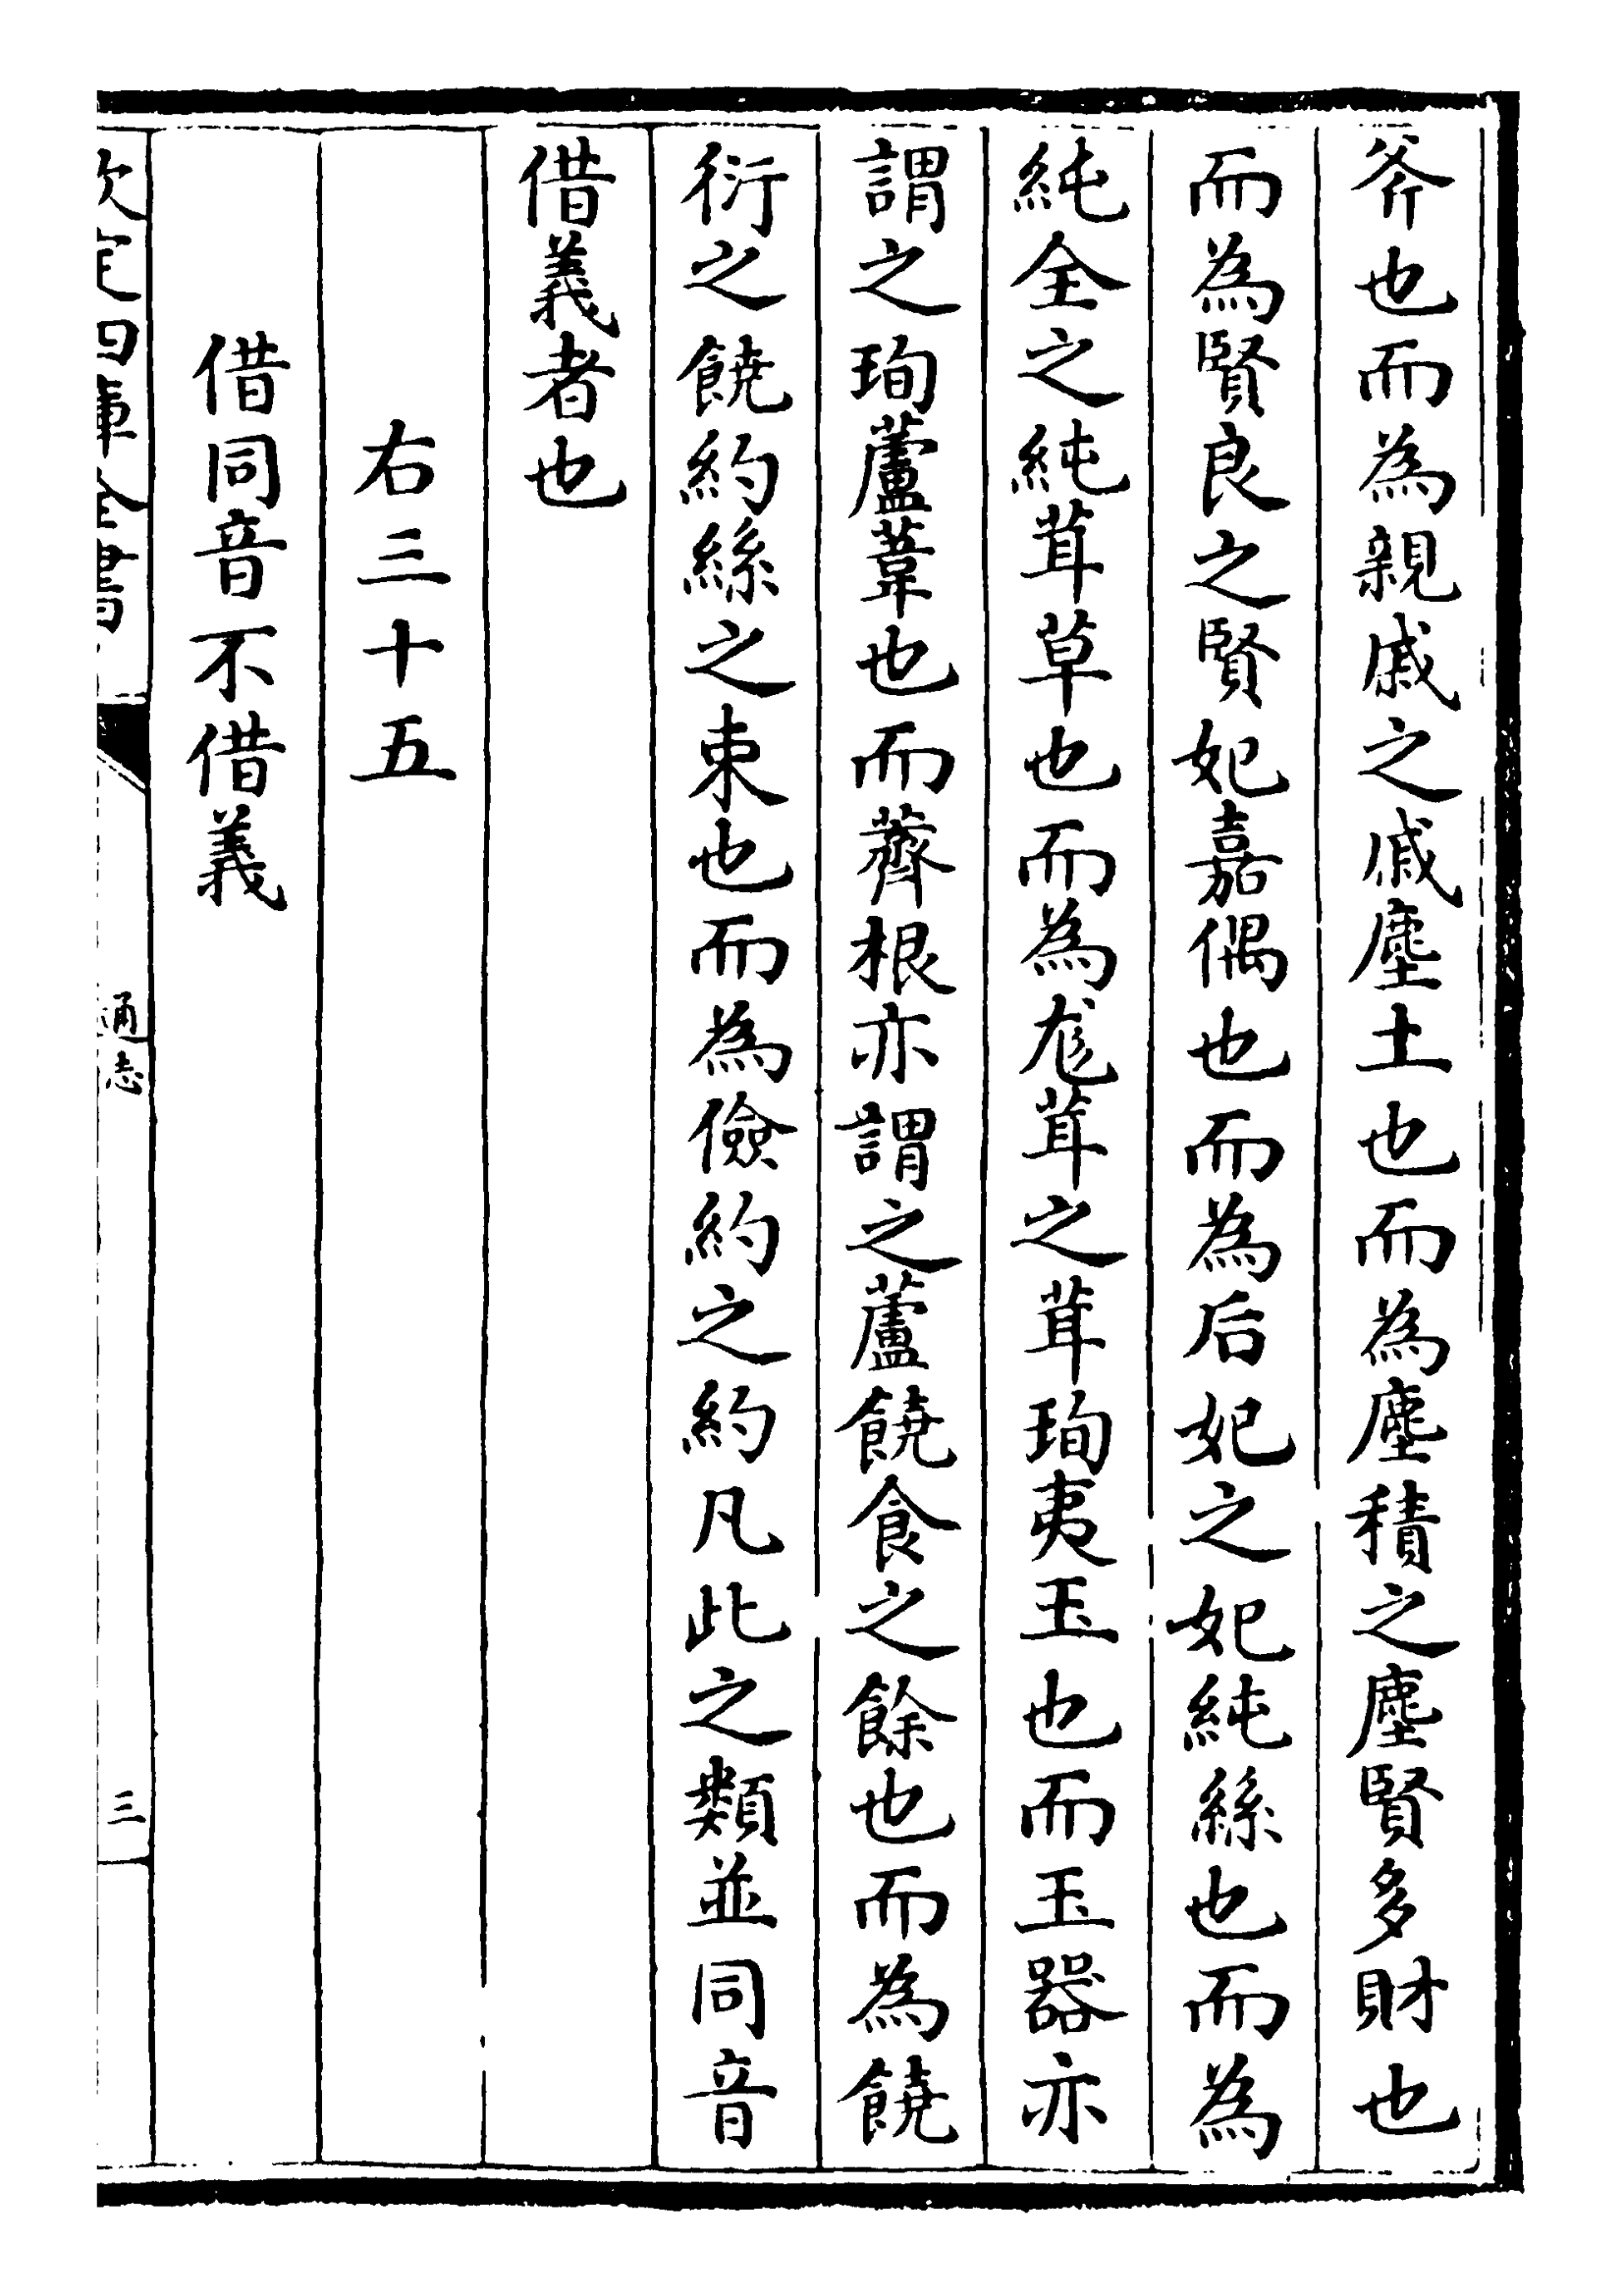 斧也而為親戚之戚塵土也而為塵積之塵賢多財也
而為賢良之賢妃嘉偶也而為后妃之妃純絲也而為
純全之純茸草也而為尨茸之茸珣夷玉也而玉器亦
謂之珣蘆葦也而薺根亦謂之蘆饒食之餘也而為饒
衍之饒約絲之束也而為儉約之約凡此之類並同音
借義者也
右三十五
借同音不借義
欽定四庫全書
通志
三